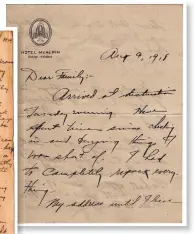 HOTEL McALPIN
Aug 9, 1918
Dear Family:-
Arrived at destination
Tuesday evening. Have
spent time since looking
in and buying things I
was short of. I had
to completely repack every
thing.
My address until I have